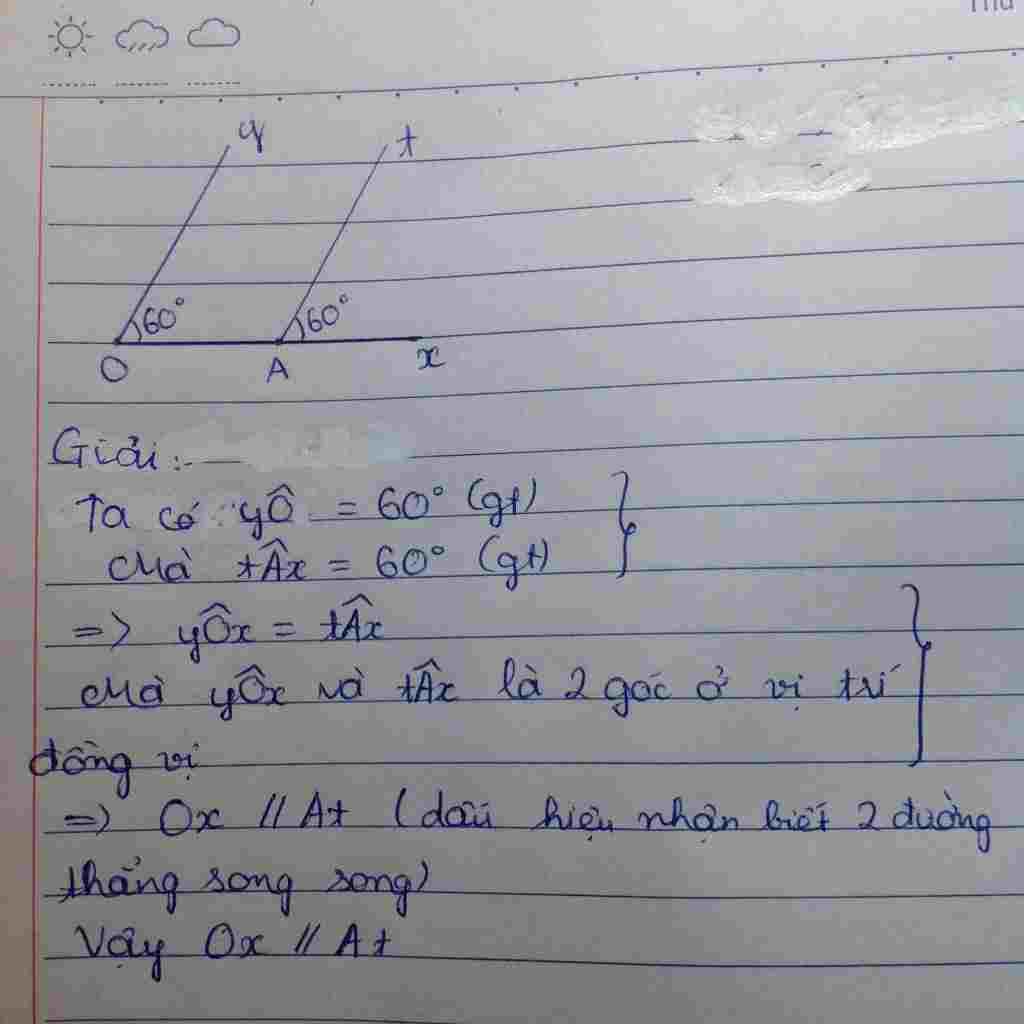 y t
60° 60°
O A x
Giải:
Ta có: yÔ = 60° (gt)
Mà tÂx = 60° (gt)
=> yÔx = tÂx
Mà yÔx và tÂx là 2 góc ở vị trí
đồng vị
=> Ox // At (dấu hiệu nhận biết 2 đường
thẳng song song)
Vậy Ox // At